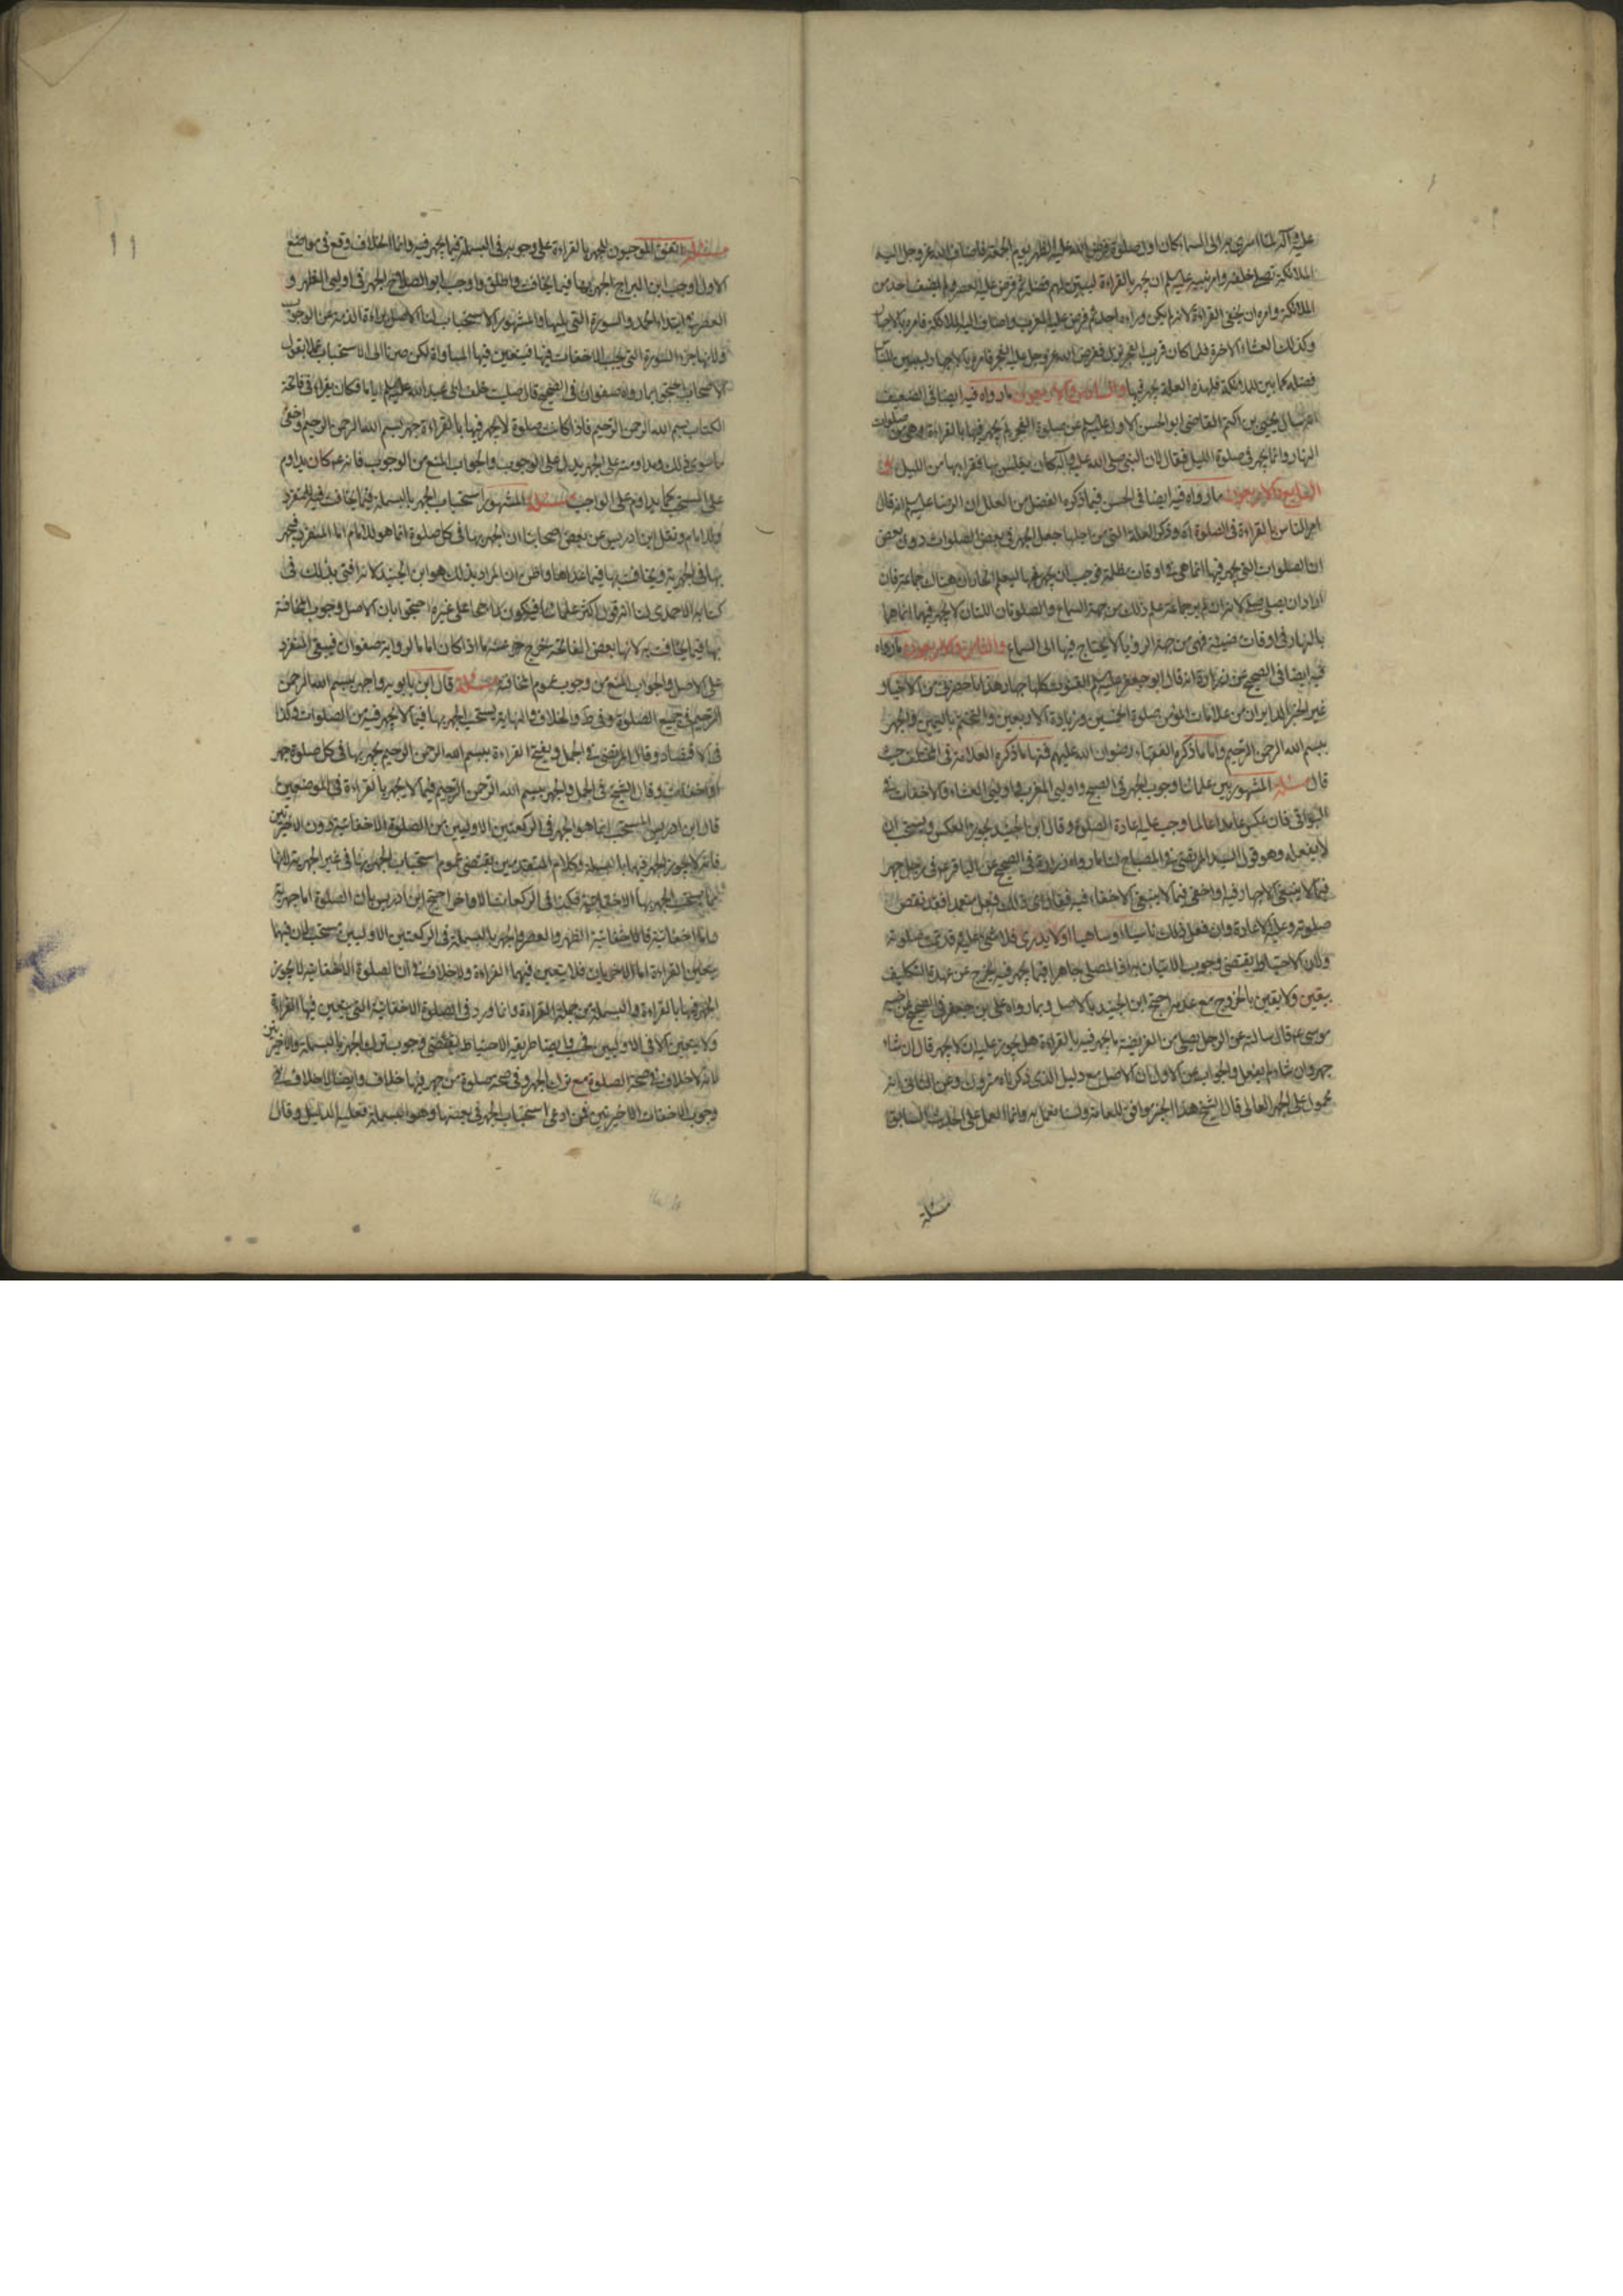 عليه وآله لما اسرى به الى السماء كان اول صلوة فرض الله عليه الظهر يوم الجمعة فاضاف الله عز وجل اليه
الملائكة تصلى خلفه وامر نبيه عليه السلم ان يجهر بالقراءة ليبين لهم فضله ثم فرض عليه العصر ولم يضف احدا من
الملائكة وامره ان يخفى القراءة لانه لم يكن وراءه احد ثم فرض عليه المغرب واضاف اليه الملائكة فامره بالاجهار
وكذلك العشاء الاخرة فلما كان قرب الفجر نزل ففرض الله عز وجل عليه الفجر فامره بالاجهار ليبين للناس
فضله كما بين للملائكة فلهذه العلة يجهر فيها والسادس والاربعون ما رواه فيه ايضا فى الضعيف
انه سال يحيى بن اكثم القاضى ابو الحسن الاول عليه السلم عن صلوة الفجر لم يجهر فيها بالقراءة وهى من صلوات
النهار وانما يجهر فى صلوة الليل فقال لان النبى صلى الله عليه وآله كان يغلس بها فقرابها من الليل و
السابع والاربعون ما رواه فيه ايضا فى الحسن فيما ذكره الفضل من العلل عن الرضا عليه السلم انه قال
امر الناس بالقراءة فى الصلوة اه وذكر العلة التى من اجلها جعل الجهر فى بعض الصلوات دون بعض
ان الصلوات التى يجهر فيها انما هى فى اوقات مظلمة فوجب ان يجهر فيها ليعلم المار ان هناك جماعة فان
اراد ان يصلى صلى لانه ان لم ير جماعة علم ذلك من جهة السماع والصلوتان اللتان لا يجهر فيهما انما هما
بالنهار فى اوقات مضيئة فهى من جهة الرؤيا لا يحتاج فيها الى السماع والثامن والاربعون ما رواه
فيه ايضا فى الصحيح عن زرارة انه قال ابو جعفر عليه السلم القنوت كلها جهار هذا ما حضرنى من الاخبار
غير الخبر من علامات المؤمن صلوة الخمسين وزيارة الاربعين والتختم باليمين والجهر
ببسم الله الرحمن الرحيم واما ما ذكره الفقهاء رضوان الله عليهم فمنها ما ذكره العلامة فى المختلف حيث
قال مسئلة المشهور بين علمائنا وجوب الجهر فى الصبح واوليى المغرب واوليى العشاء والاخفات فى
البواقى فان عكس عامدا عالما وجب عليه اعادة الصلوة وقال ابن الجنيد يجوز العكس ويستحب ان
لا يفعله وهو قول السيد المرتضى فى المصباح لنا ما رواه زرارة فى الصحيح عن الباقر ع فى رجل جهر
فيما لا ينبغى الاجهار فيه واخفى فيما لا ينبغى الاخفاء فيه فقال اى ذلك فعل متعمدا فقد نقض
صلوته وعليه الاعادة وان فعل ذلك ناسيا او ساهيا او لا يدرى فلا شئ عليه وقد تمت صلوته
ولان الاحتياط يقتضى وجوب الاتيان به اذ المصلى جاهرا فيما يجهر فيه يخرج عن عهدة التكليف
بيقين ولا يقين بالخروج مع عدمه احتج ابن الجنيد بالاصل وبما رواه على بن جعفر فى الصحيح عن اخيه
موسى ع قال سالته عن الرجل يصلى من الفريضة ما يجهر فيه بالقراءة هل يجوز عليه ان لا يجهر قال ان شاء
جهر وان شاء لم يفعل والجواب عن الاول ان الاصل مع دليل الذى ذكرناه متروك وعن الثانى انه
محمول على الجهر العالى قال الشيخ هذا الخبر موافق للعامة ولسنا نعمل به وانما العمل على الحديث السابق
مسئلة
مسئلة اتفق الموجبون للجهر بالقراءة على وجوبه فى البسملة فيما يجهر فيه وانما الخلاف وقع فى مواضع
الاول اوجب ابن البراج الجهر بها فيما يخافت واطلق واوجب ابو الصلاح الجهر فى اوليى الظهر و
العصر فى ابتداء الحمد والسورة التى يليها والمشهور الاستحباب لنا الاصل براءة الذمة عن الوجوب
ولانها جزء السورة التى يجب الاخفات فيها فيتعين فيها المساواة لكن صرنا الى الاستحباب عملا بقول
الاصحاب احتجوا بما رواه صفوان فى الصحيح قال صليت خلف ابى عبد الله عليه السلم اياما فكان يقراء فى فاتحة
الكتاب بسم الله الرحمن الرحيم فاذا كانت صلوة لا يجهر فيها بالقراءة جهر ببسم الله الرحمن الرحيم واخفى
ما سوى ذلك ومداومته على الجهر يدل على الوجوب والجواب المنع من الوجوب فانه ع كان يداوم
على المستحب كما يداوم على الواجب مسئلة المشهور استحباب الجهر بالبسملة فيما يخافت فيه للمنفرد
والامام ونقل ابن ادريس عن بعض اصحابنا ان الجهر بها فى كل صلوة انما هو للامام اما المنفرد فيجهر
بها فى الجهرية ويخافت بها فيما عداها واظن ان المراد بذلك هو ابن الجنيد لانه افتى بذلك فى
كتابه الاحمدى لنا انه قول اكثر علمائنا فيكون راجحا على غيره احتجوا بان الاصل وجوب المخافتة
بها فيما يخافت به لانها بعض الفاتحة خرج عنه ما اذا كان اماما لرواية صفوان فيبقى المنفرد
على الاصل والجواب المنع من وجوب عموم المخافتة مسئلة قال ابن بابويه واجهر ببسم الله الرحمن
الرحيم فى جميع الصلوة وفى ط والخلاف والنهاية يستحب الجهر بها فيما لا يجهر فيه من الصلوات وكذا
فى الاقتصاد وقال المرتضى فى الجمل ويفتح القراءة ببسم الله الرحمن الرحيم يجهر بها فى كل صلوة جهر
او اخفات وقال الشيخ فى الجمل والجهر ببسم الله الرحمن الرحيم فيما لا يجهر بالقراءة فى الموضعين
قال ابن ادريس المستحب انما هو الجهر فى الركعتين الاوليين من الصلوة الاخفاتية دون الاخيرتين
فانه لا يجوز الجهر فيهما بالبسملة وكلام المتقدمين يقتضى عموم استحباب الجهر بها فى غير الجهرية لانها
كما يستحب الجهر بها الاخفاتية فكذا فى الركعات الاواخر احتج ابن ادريس بان الصلوة اما جهرية
واما اخفاتية فالاخفاتية الظهر والعصر والجهر بالبسملة فى الركعتين الاوليين مستحب لان فيهما
يتعين القراءة اما الاخريات فلا يتعين فيهما القراءة ولا خلاف فى ان الصلوة الاخفاتية لا يجوز
الجهر فيها بالقراءة والبسملة من جملة القراءة وانما ورد فى الصلوة الاخفاتية التى يتعين فيها القراءة
ولا يتعين الا فى الاوليين فحسب وايضا طريقة الاحتياط يقتضى وجوب ترك الجهر بالبسملة فى الاخيرتين
لانه لا خلاف فى صحة الصلوة مع ترك الجهر وفى صحة صلوة من جهر فيها خلاف وايضا لا خلاف فى
وجوب الاخفات الاخيرتين فمن ادعى استحباب الجهر فى بعضها وهو البسملة فعليه الدليل وقال